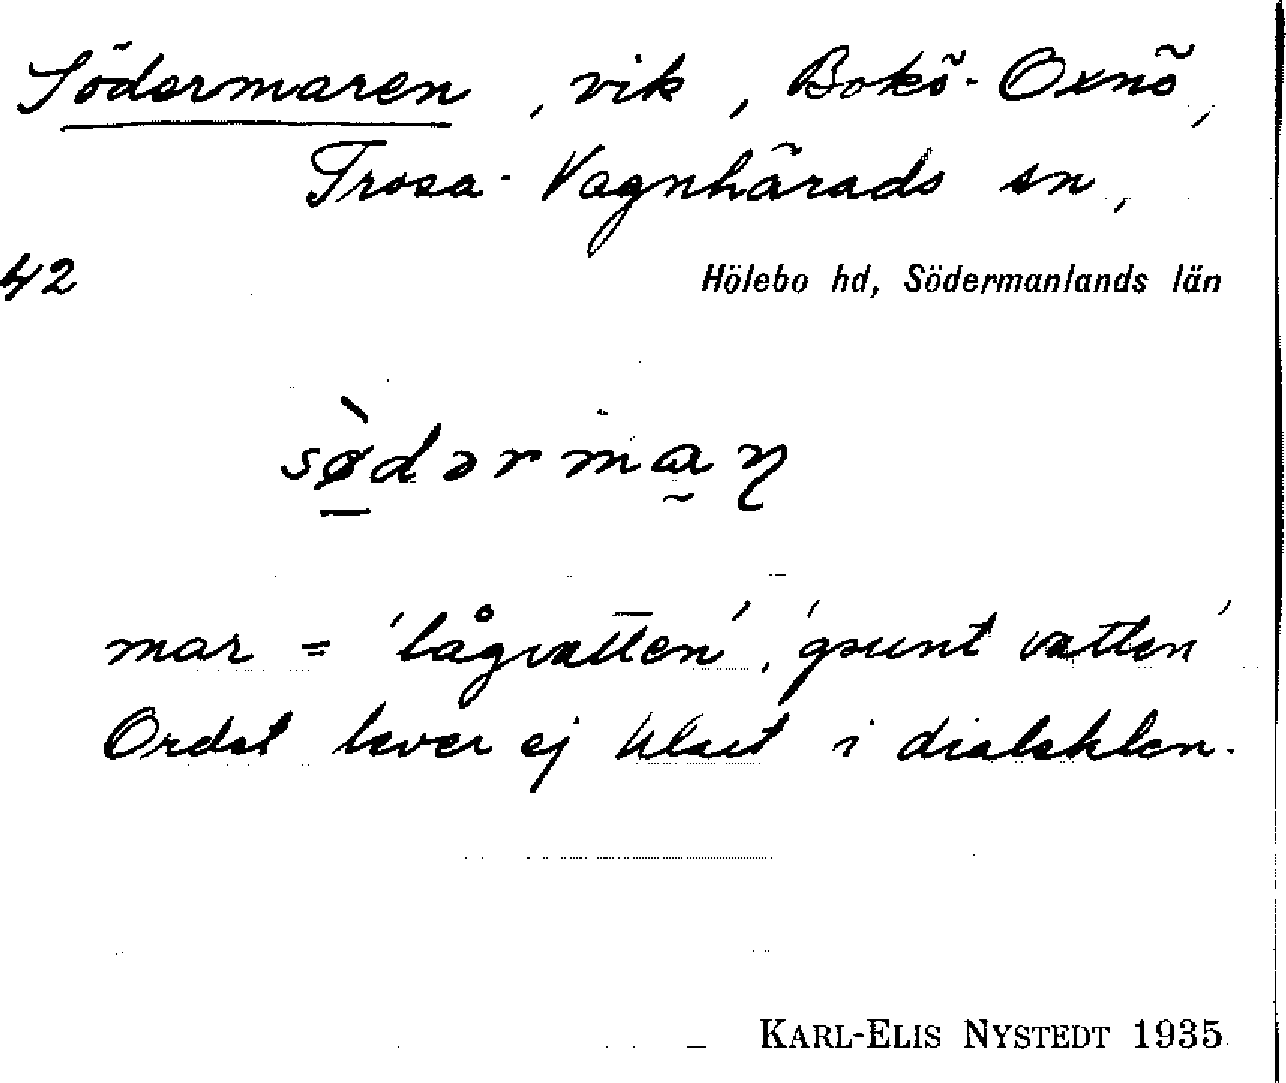 Södermaren, vik, Bokö-Oxnö,
Trosa-Vagnhärads sn,
42
Hölebo hd, Södermanlands län
sø̀dərmaɳ
mar = 'lågvatten', 'grunt vatten'
Ordet lever ej klart i dialekten.
KARL-ELIS NYSTEDT 1935